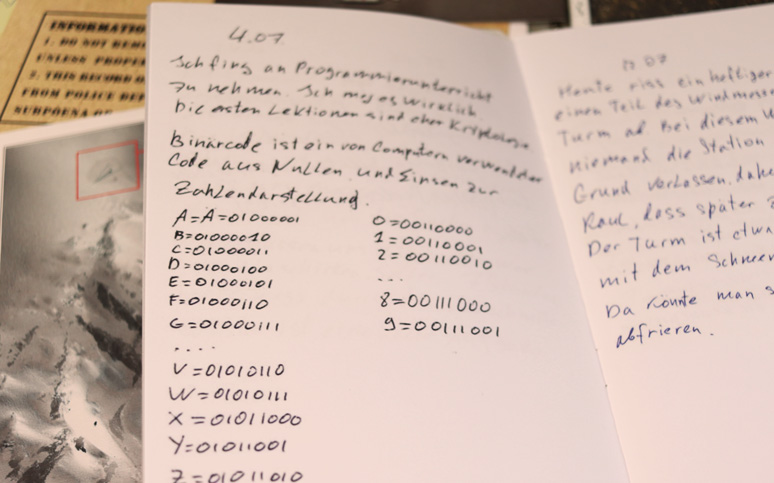 INFORMATION
1. DO NOT REM
UNLESS PROPE
2. THIS RECORD O
FROM POLICE DEP
SUBPOENA OF
4.07.
Ich fing an Programmierunterricht
zu nehmen. Ich mag es wirklich.
Die ersten Lektionen sind eher Kryptologie
Binärcode ist ein von Computern verwendeter
Code aus Nullen und Einsen zur
Zahlendarstellung.
A=A=01000001
B=01000010
C=01000011
D=01000100
E=01000101
F=01000110
G=01000111
....
V=01010110
W=01010111
X=01011000
Y=01011001
Z=01011010
0=00110000
1=00110001
2=00110010
...
8=00111000
9=00111001
07
Heute riss ein heftiger
einen Teil des Windmess
Turm ab. Bei diesem W
niemand die Station
Grund verlassen, dahe
Raul, dass später
Der Turm ist etwa
mit dem Schnee
Da könnte man s
abfrieren.